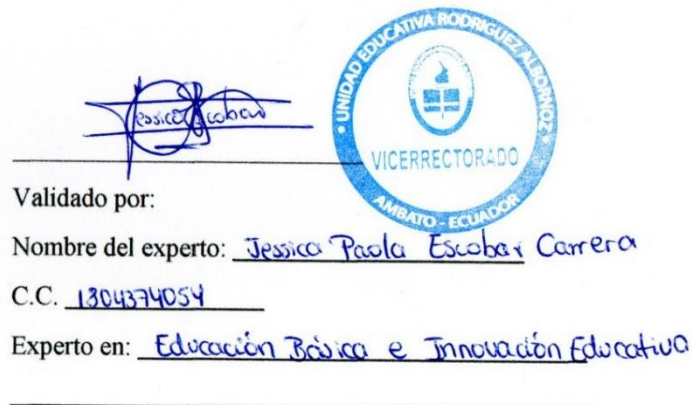 Jessica Escobar
UNIDAD EDUCATIVA RODRIGUEZ ALBORNOZ
VICERRECTORADO
AMBATO - ECUADOR
Validado por:
Nombre del experto: Jessica Paola Escobar Carrera
C.C. 1804374054
Experto en: Educación Básica e Innovación Educativa